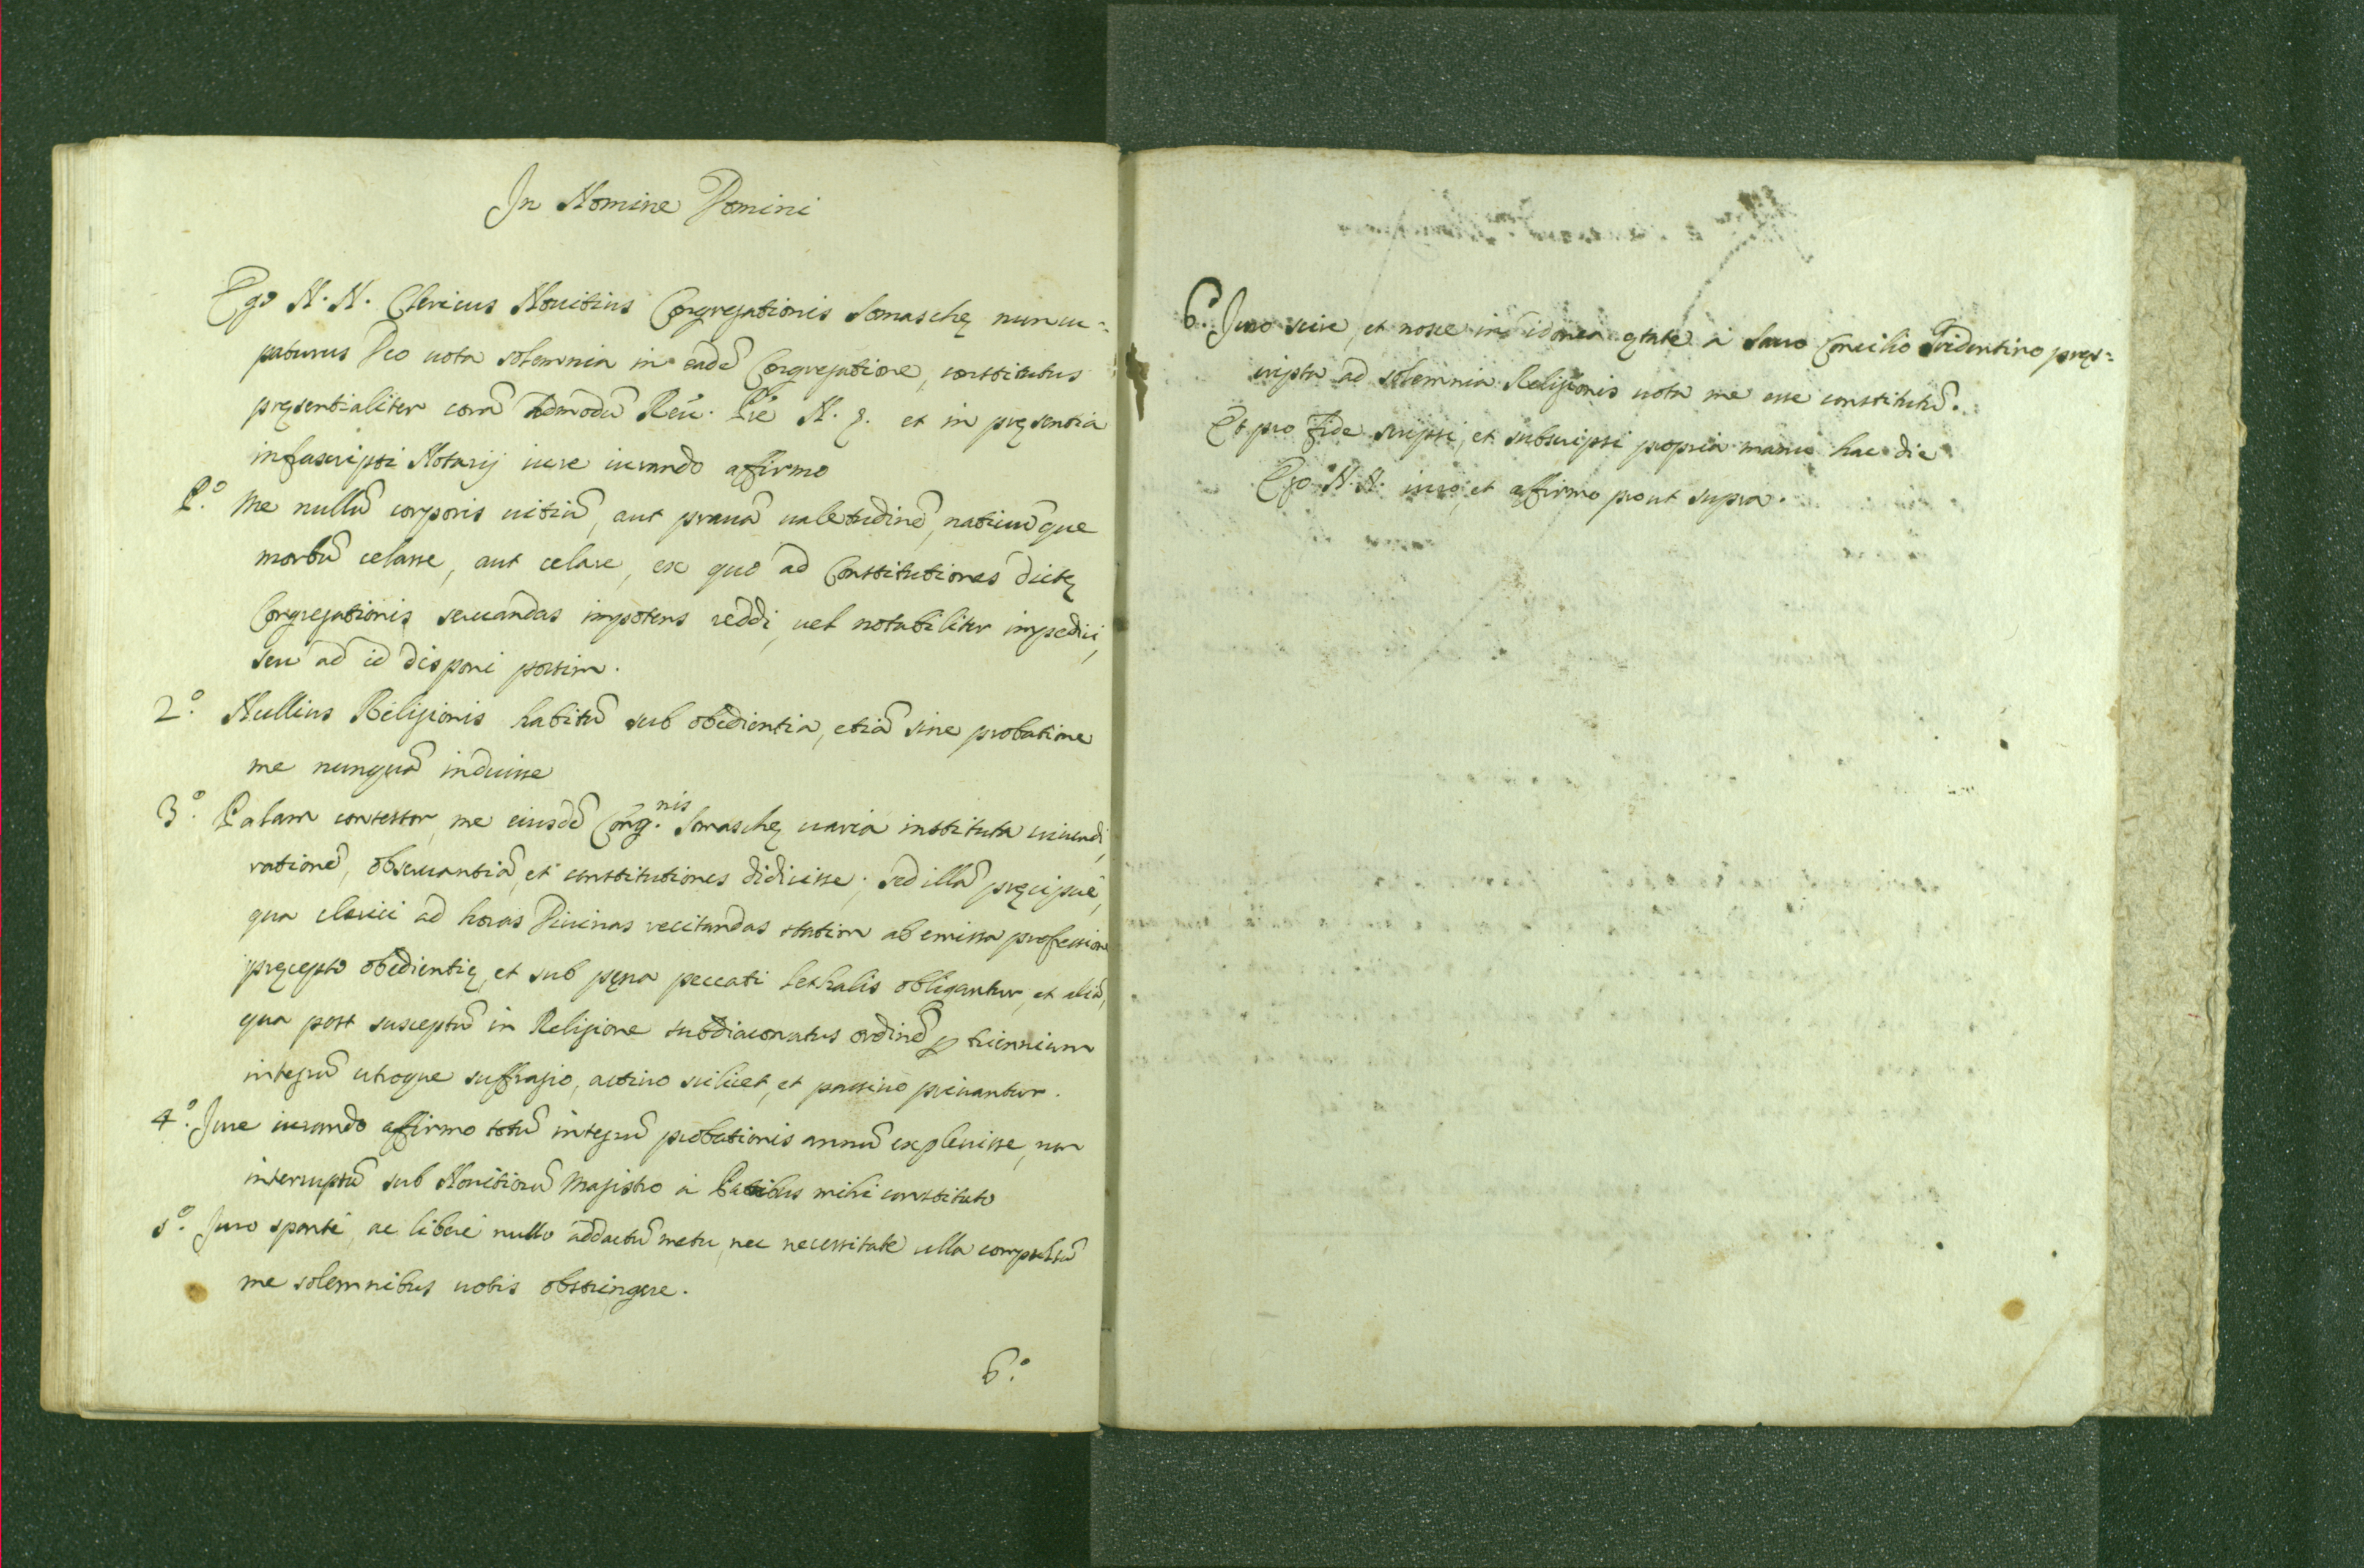 In Nomine Domini
Ego N. N. Clericus Nouitius Congregationis Somaschę nuncu=
paturus Deo uota solemnia in eadē Congregatione, constitutus
pręsentialiter corā Admodū Reū. Prē N. N. et in pręsentia
infrascripti Notarij iure iurando affirmo
P.º Me nullū corporis uitiū, aut prauā ualetudinē, natiuūque
morbū celasse, aut celare, ex quo ad Constitutiones dictę
Congregationis seruandas impotens reddi, uel notabiliter impediri,
seu ad id disponi possim.
2.º Nullius Religionis habitū sub obedientia, etiā sine probatione
me nunquā induisse
3.º Palam contestor, me eiusdē Cong.nis Somaschę uaria instituta uiuendi,
rationē, obseruantiā, et constitutiones didicisse; sed illā pręcipuè,
qua clerici ad horas Diuinas recitandas statim ab emissa professione
pręcepto obedientię, et sub pęna peccati lethalis obligantur, et aliā,
qua post susceptū in Religione subdiaconatus ordinē ꝑ triennium
integrū utroque suffragio, actiuo scilicet, et passiuo priuantur.
4.º Iure iurando affirmo totū integrū probationis annū expleuisse, non
interruptū sub Nouitiorū Magistro à Patribus mihi constituto
5.º Iuro sponte, ac liberè nullo addactū metu, nec necessitate ulla compulsū
me solemnibus uotis obstringere.
6.º
6.º Iuro scire, et nosse in idonea ętate à Sacro Concilio Tridentino pręs=
cripta ad solemnia Religionis uota me esse constitutū.
Et pro fide scripsi, et subscripsi propria manu hac die
Ego N. N. iuro, et affirmo prout supra.